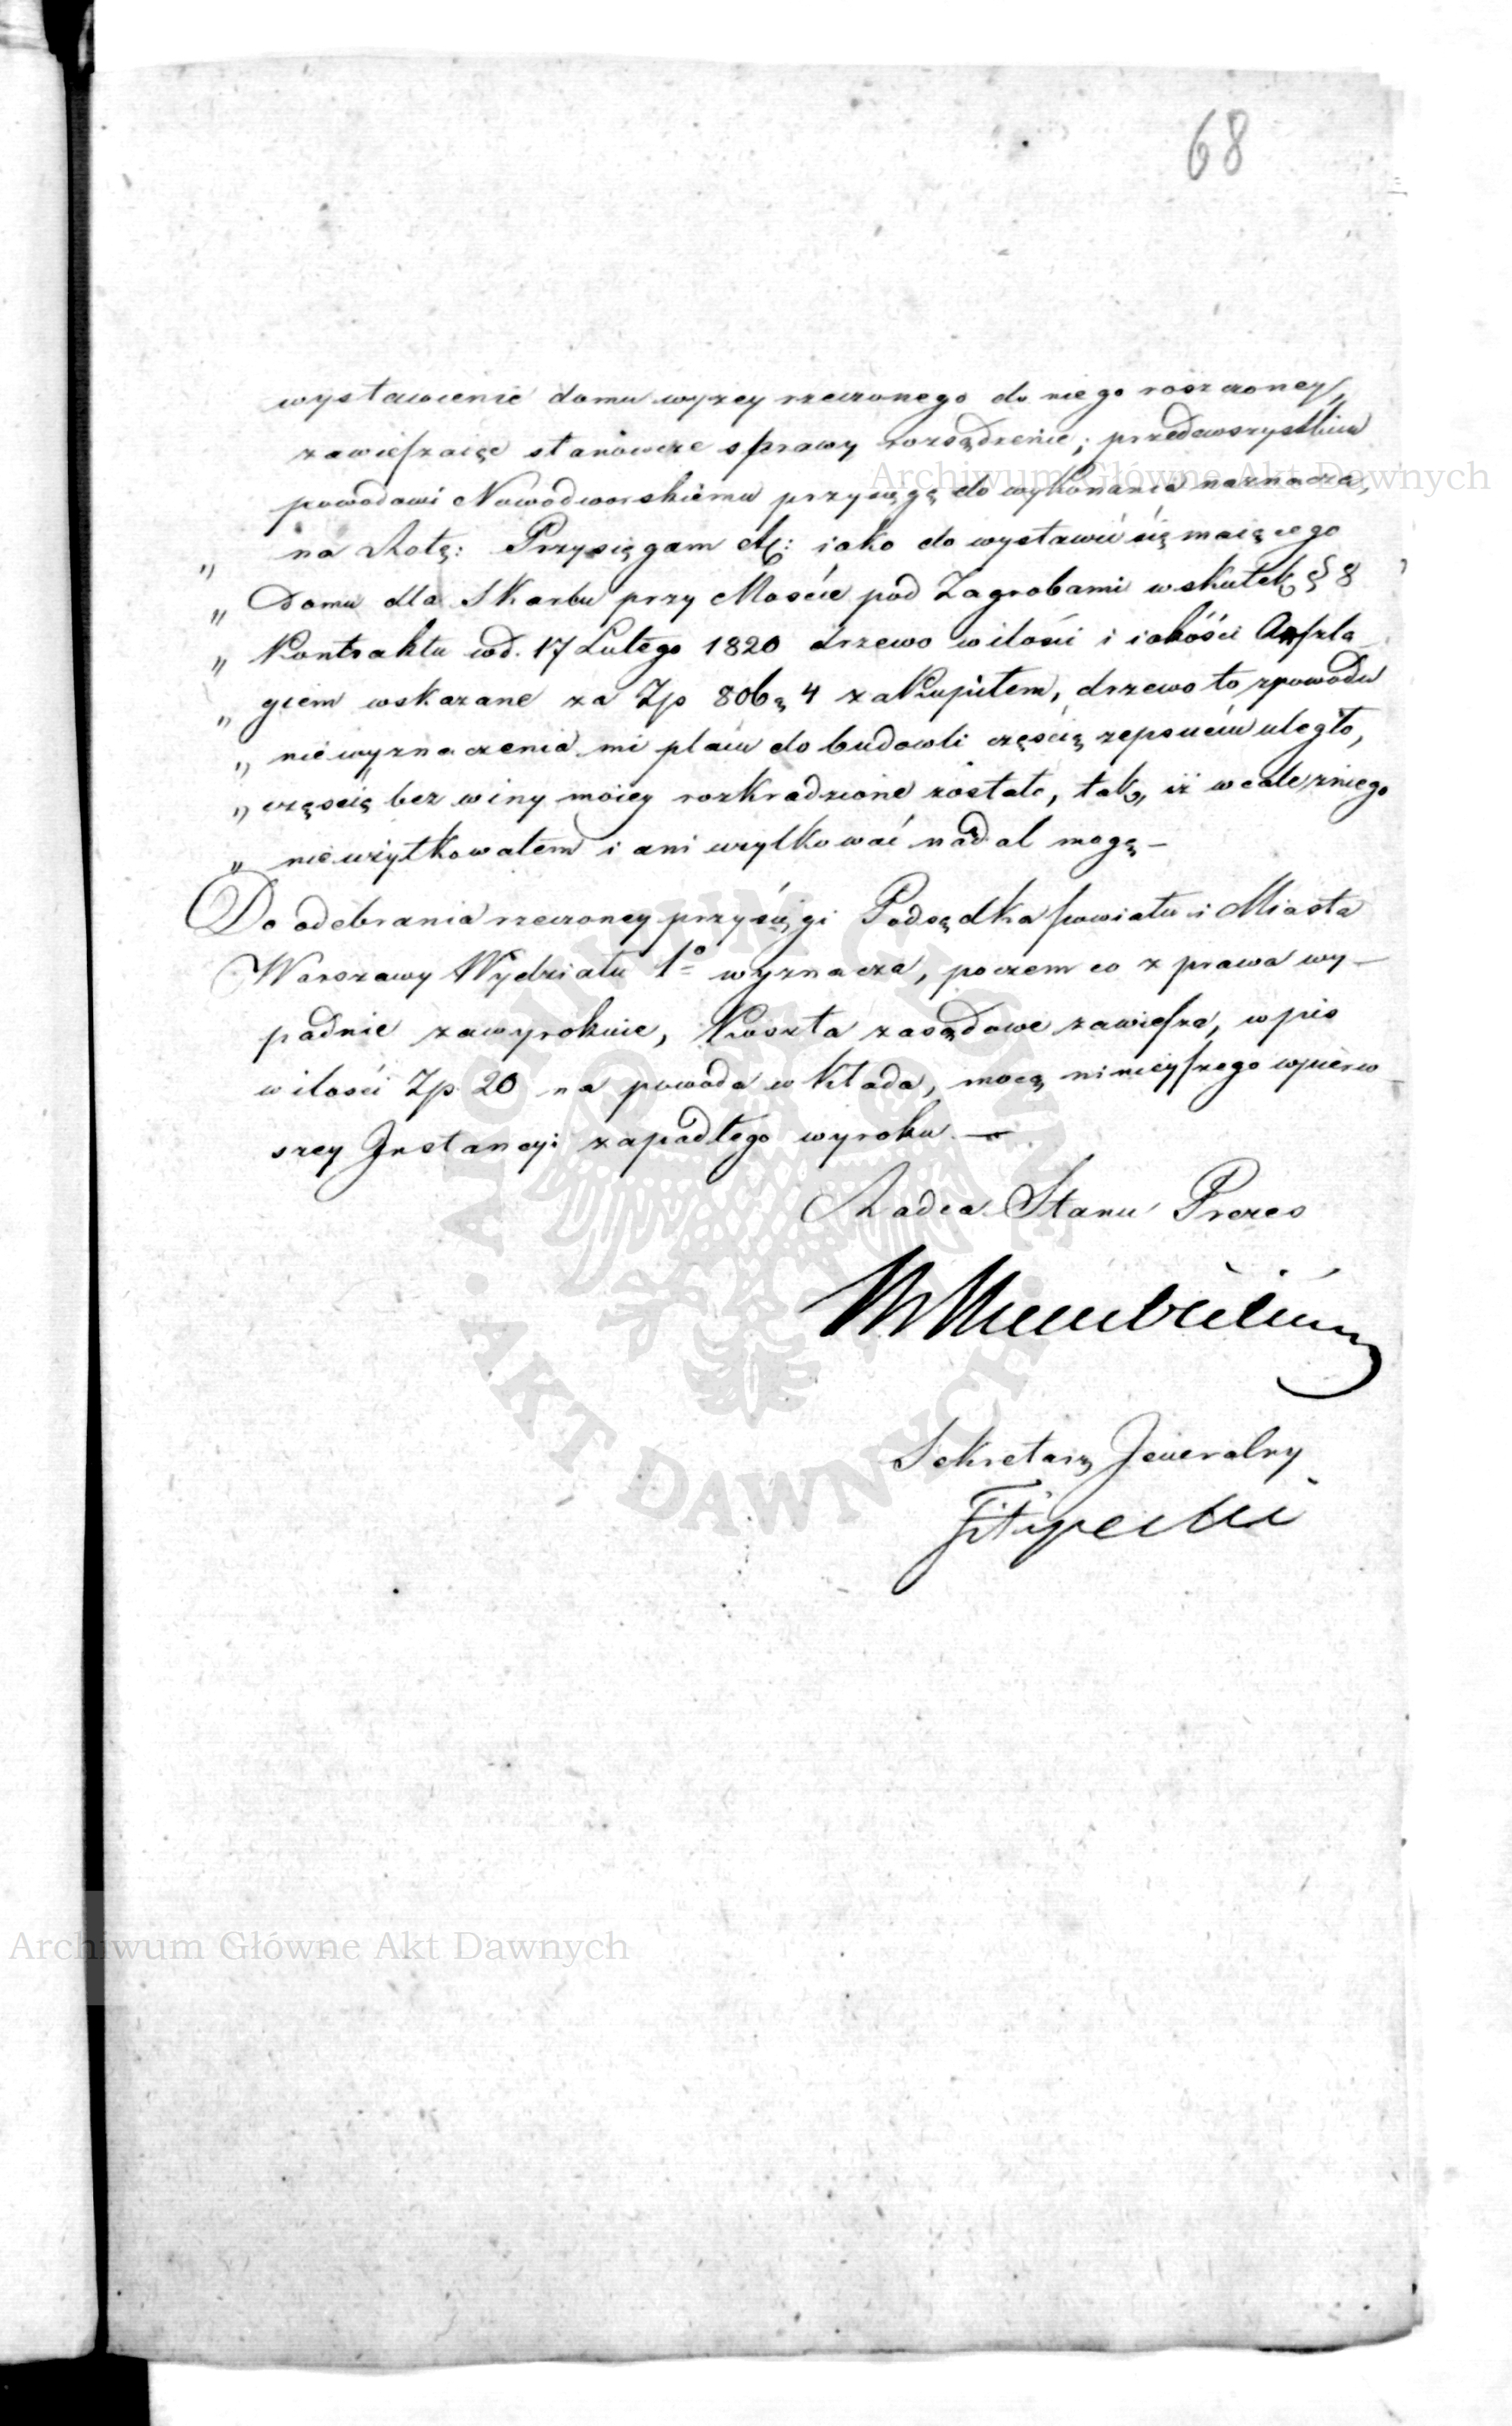 68
wystawienie domu wyzey rzeczonego do niego roszczoney,
zawieszaiąc stanowcze sprawy rozsądzenie; przedewszystkiem
powodowi Nowodworskiemu przysięgę do wykonania naznacza,
na Rotę: Przysięgam etc: iako do wystawić się maiącego
„ Domu dla Skarbu przy Moście pod Zagrobami wskutek § 8
„ Kontraktu wd. 17 Lutego 1820 drzewo w ilości i iakości Anszla
„ giem wskazane za Zp 806 g 4 zakupiłem, drzewo to zpowodu
„ niewyznaczenia mi placu do budowli częścią zepsuciu uległo,
„ częścią bez winy moiey rozkradzione zostało, tak, iż wcale zniego
„ nieużytkowałem i ani użytkować nadal mogę –
Do odebrania rzeczoney przysięgi Podsędka powiatu i Miasta
Warszawy Wydziału 1o wyznacza, poczem co z prawa wy-
padnie zawyrokuie, Koszta zasądowe zawiesza, wpis
w ilości Zp 20 na powoda wkłada, mocą ninieyszego wpierw
szey Instancyi zapadłego wyroku. —
Radca Stanu Prezes
Sekretarz Jeneralny
Filipecki
Archiwum Główne Akt Dawnych
Archiwum Główne Akt Dawnych
ARCHIWUM GŁÓWNE · AKT DAWNYCH ·